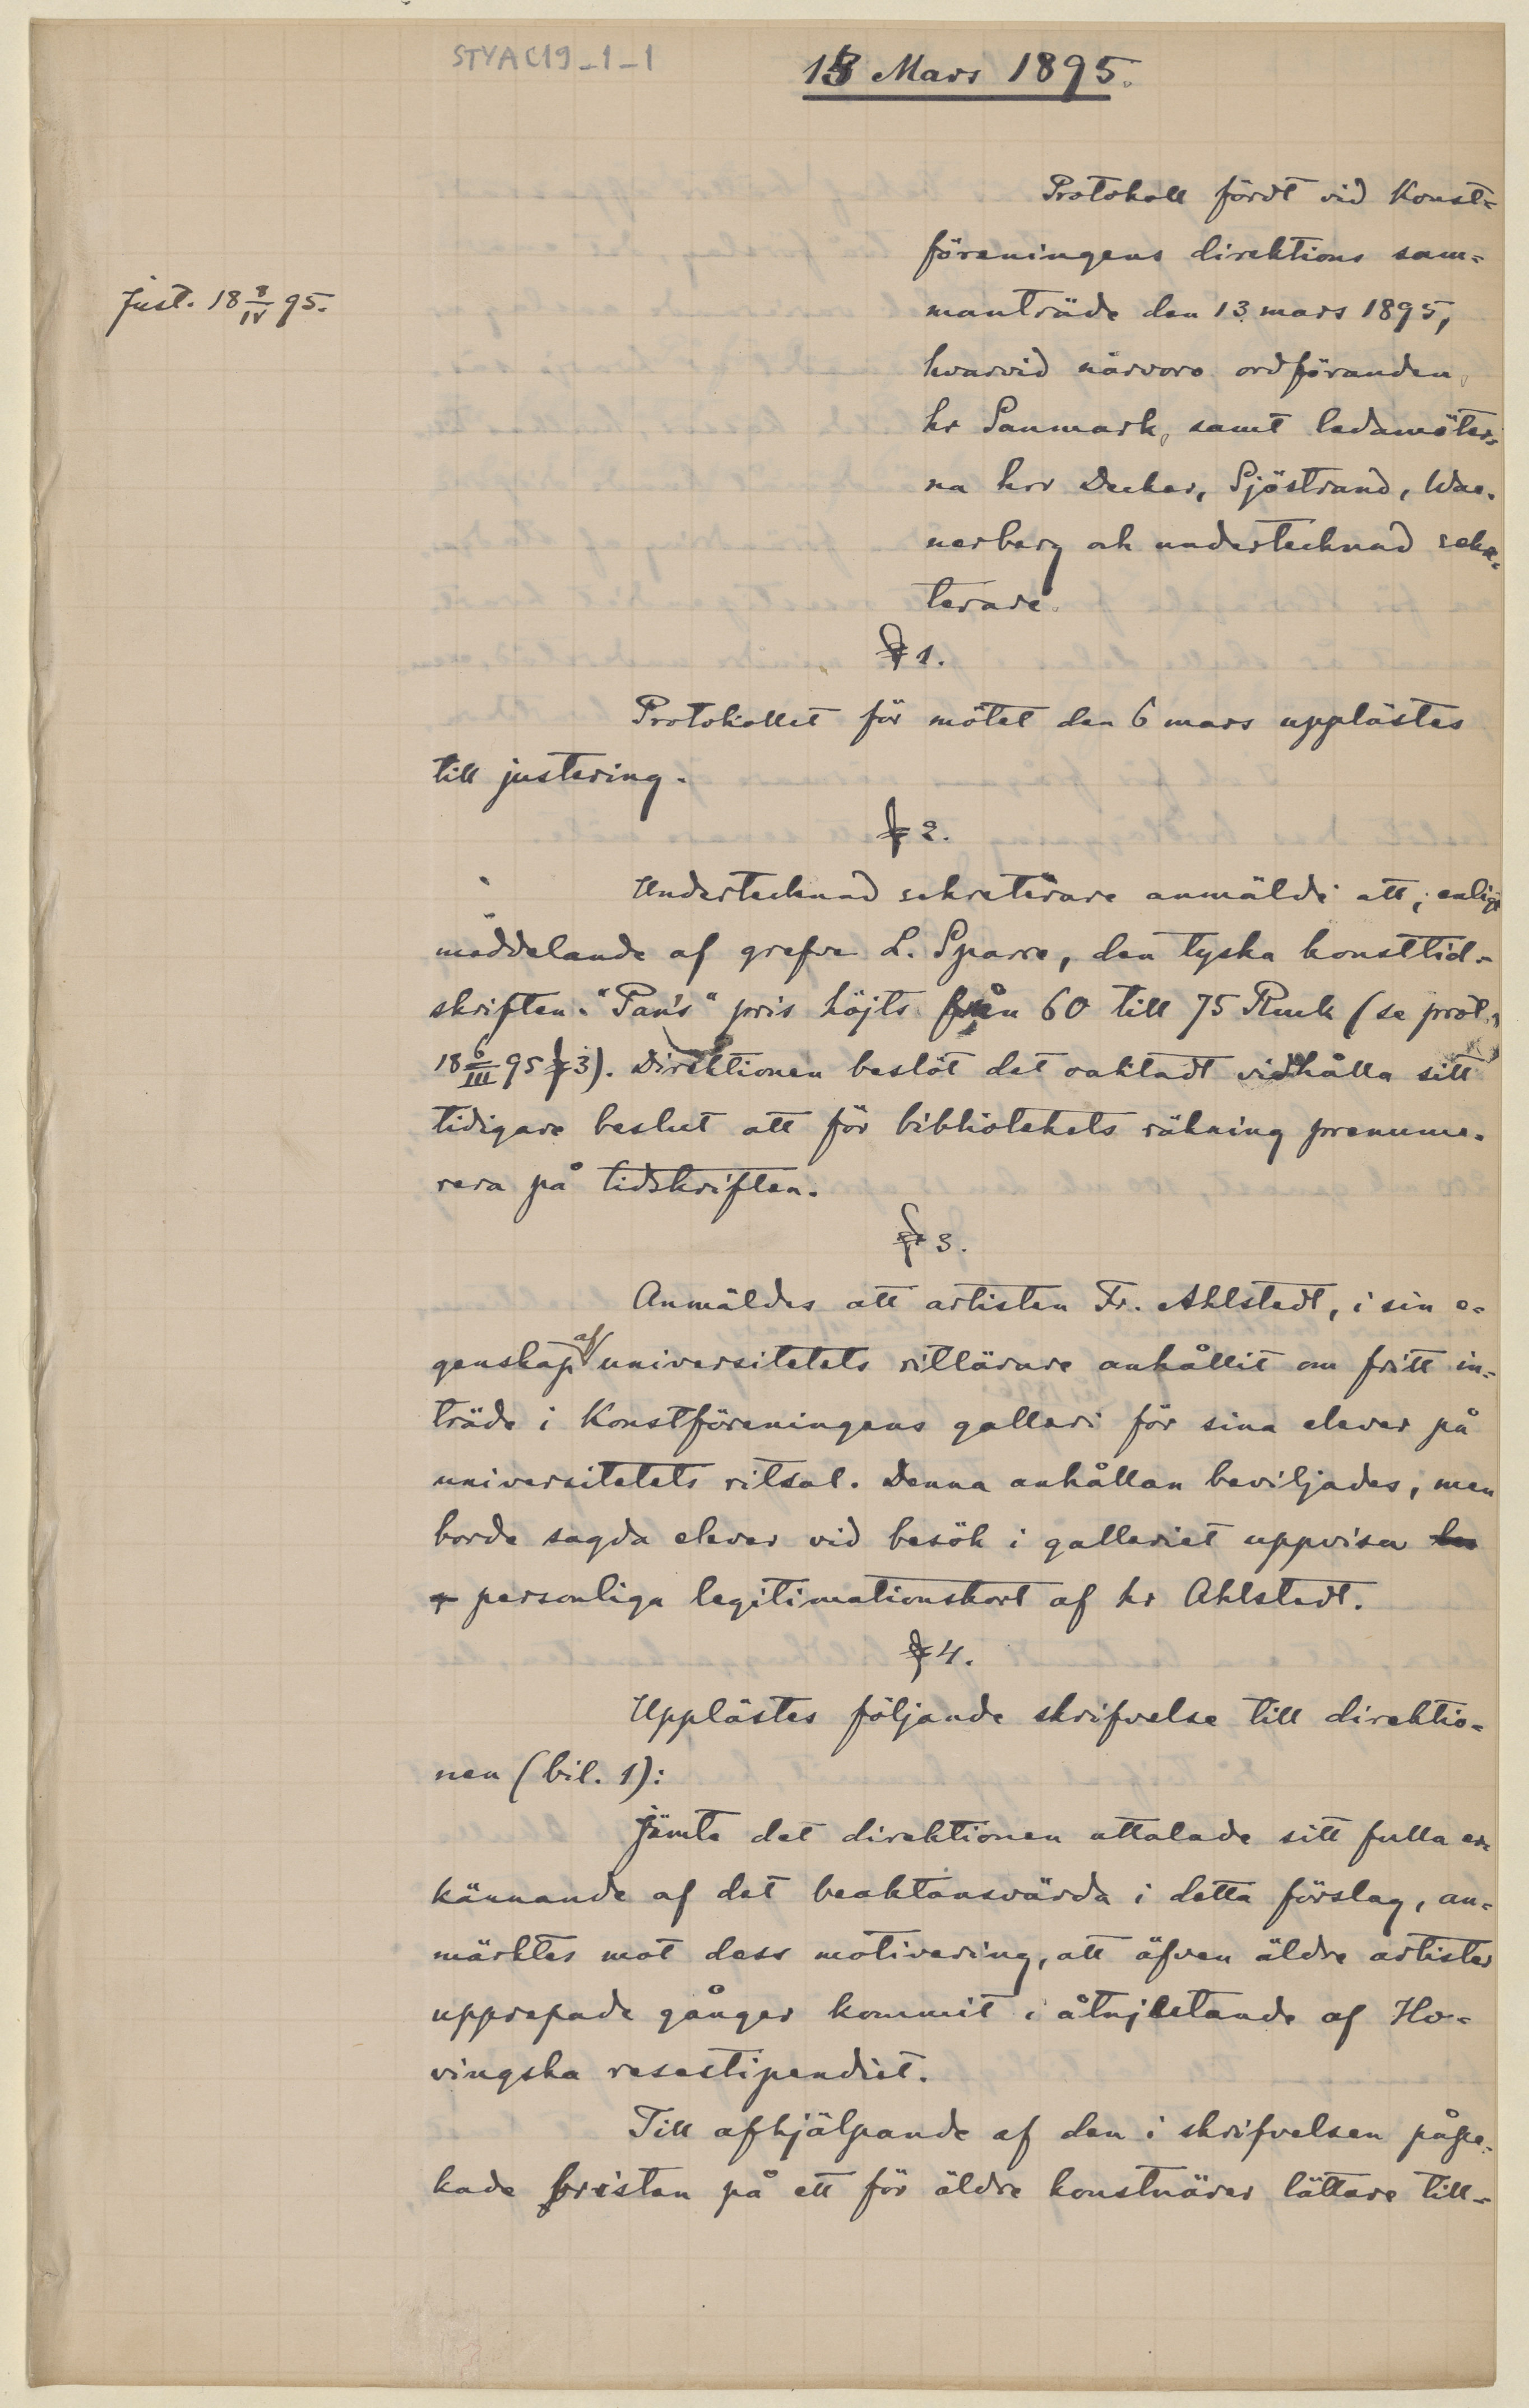 STYA C19_1_1
13 Mars 1895.
Protokoll fördt vid Konst-
föreningens direktions sam-
manträde den 13 mars 1895,
hvarvid närvoro ordföranden,
hr Sanmark, samt ledamöter-
na hrr Decker, Sjöstrand, Wae-
nerberg och undertecknad sekre-
terare.
Just. 18 8/IV 95.
§ 1.
Protokollet för mötet den 6 mars upplästes
till justering.
§ 2.
Undertecknad sekreterare anmälde att, enligt
meddelande af grefve L. Sparre, den tyska konsttid-
skriften "Pan's" pris höjts från 60 till 75 Rmk (se prot.
18 6/III 95 § 3). Direktionen beslöt det oaktadt vidhålla sitt
tidigare beslut att för bibliotekets räkning prenume-
rera på tidskriften.
§ 3.
Anmäldes att artisten Fr. Ahlstedt, i sin e-
genskap af universitetets ritlärare anhållit om fritt in-
träde i Konstföreningens galleri för sina elever på
universitetets ritsal. Denna anhållan beviljades, men
borde sagda elever vid besök i galleriet uppvisa
personliga legitimationskort af hr Ahlstedt.
§ 4.
Upplästes följande skrifvelse till direktio-
nen (bil. 1):
Jämte det direktionen uttalade sitt fulla er-
kännande af det beaktansvärda i detta förslag, an-
märktes mot dess motivering, att äfven äldre artister
upprepade gånger kommit i åtnjutande af Ho-
vingska resestipendiet.
Till afhjälpande af den i skrifvelsen påpe-
kade bristen på ett för äldre konstnärer lättare till-